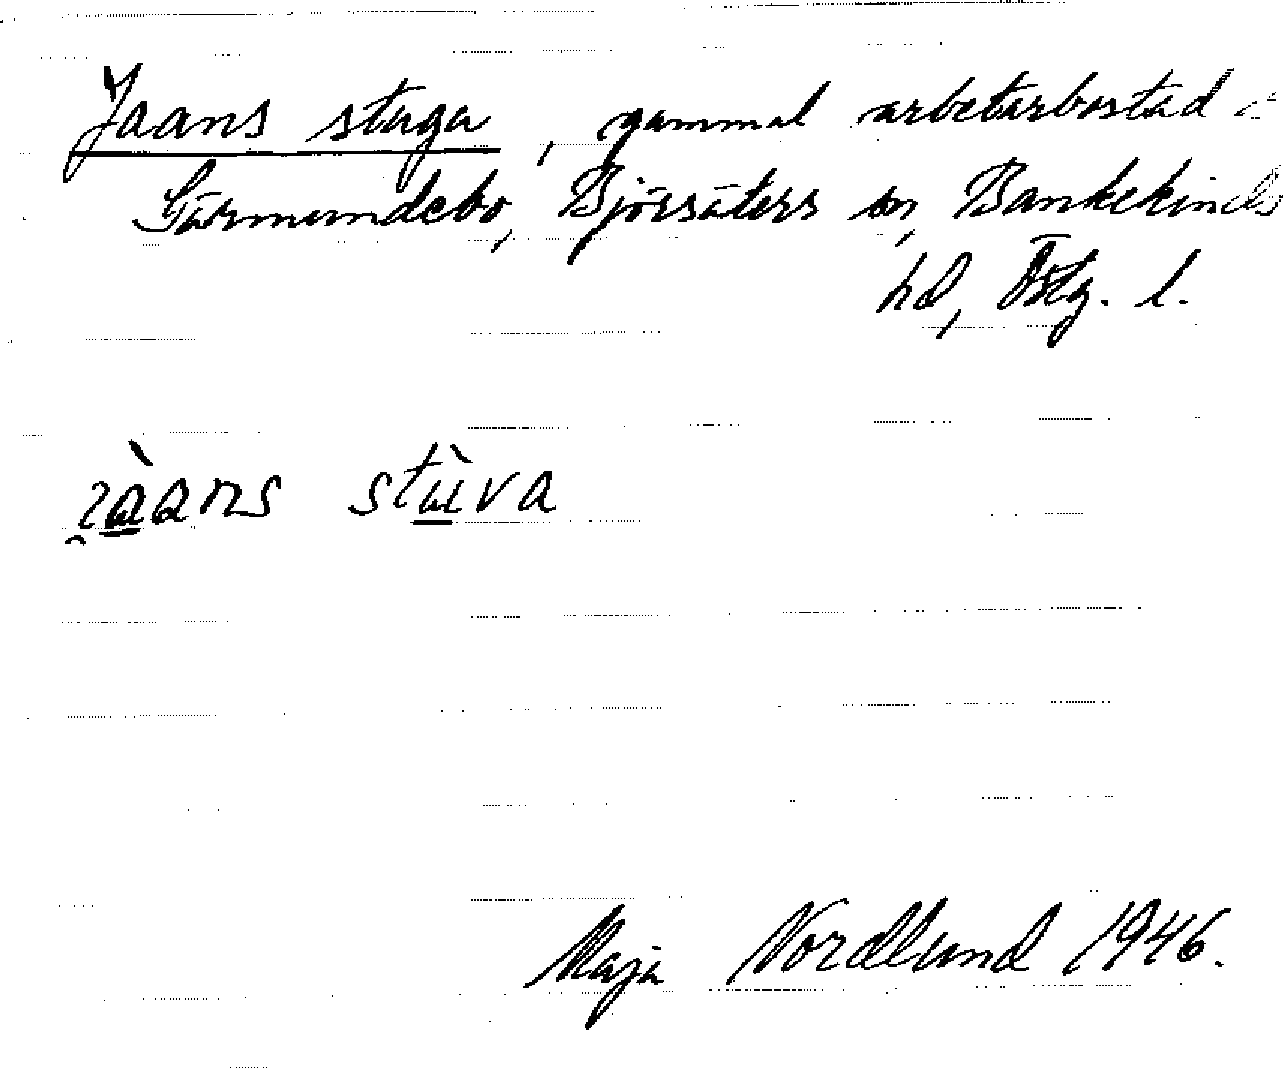 Jaans stuga, gammal arbetarbostad i
Särmundebo, Björsäters sn, Bankekinds
hd, Östg. l.
i̯àans stùva
Maja Nordlund 1946.